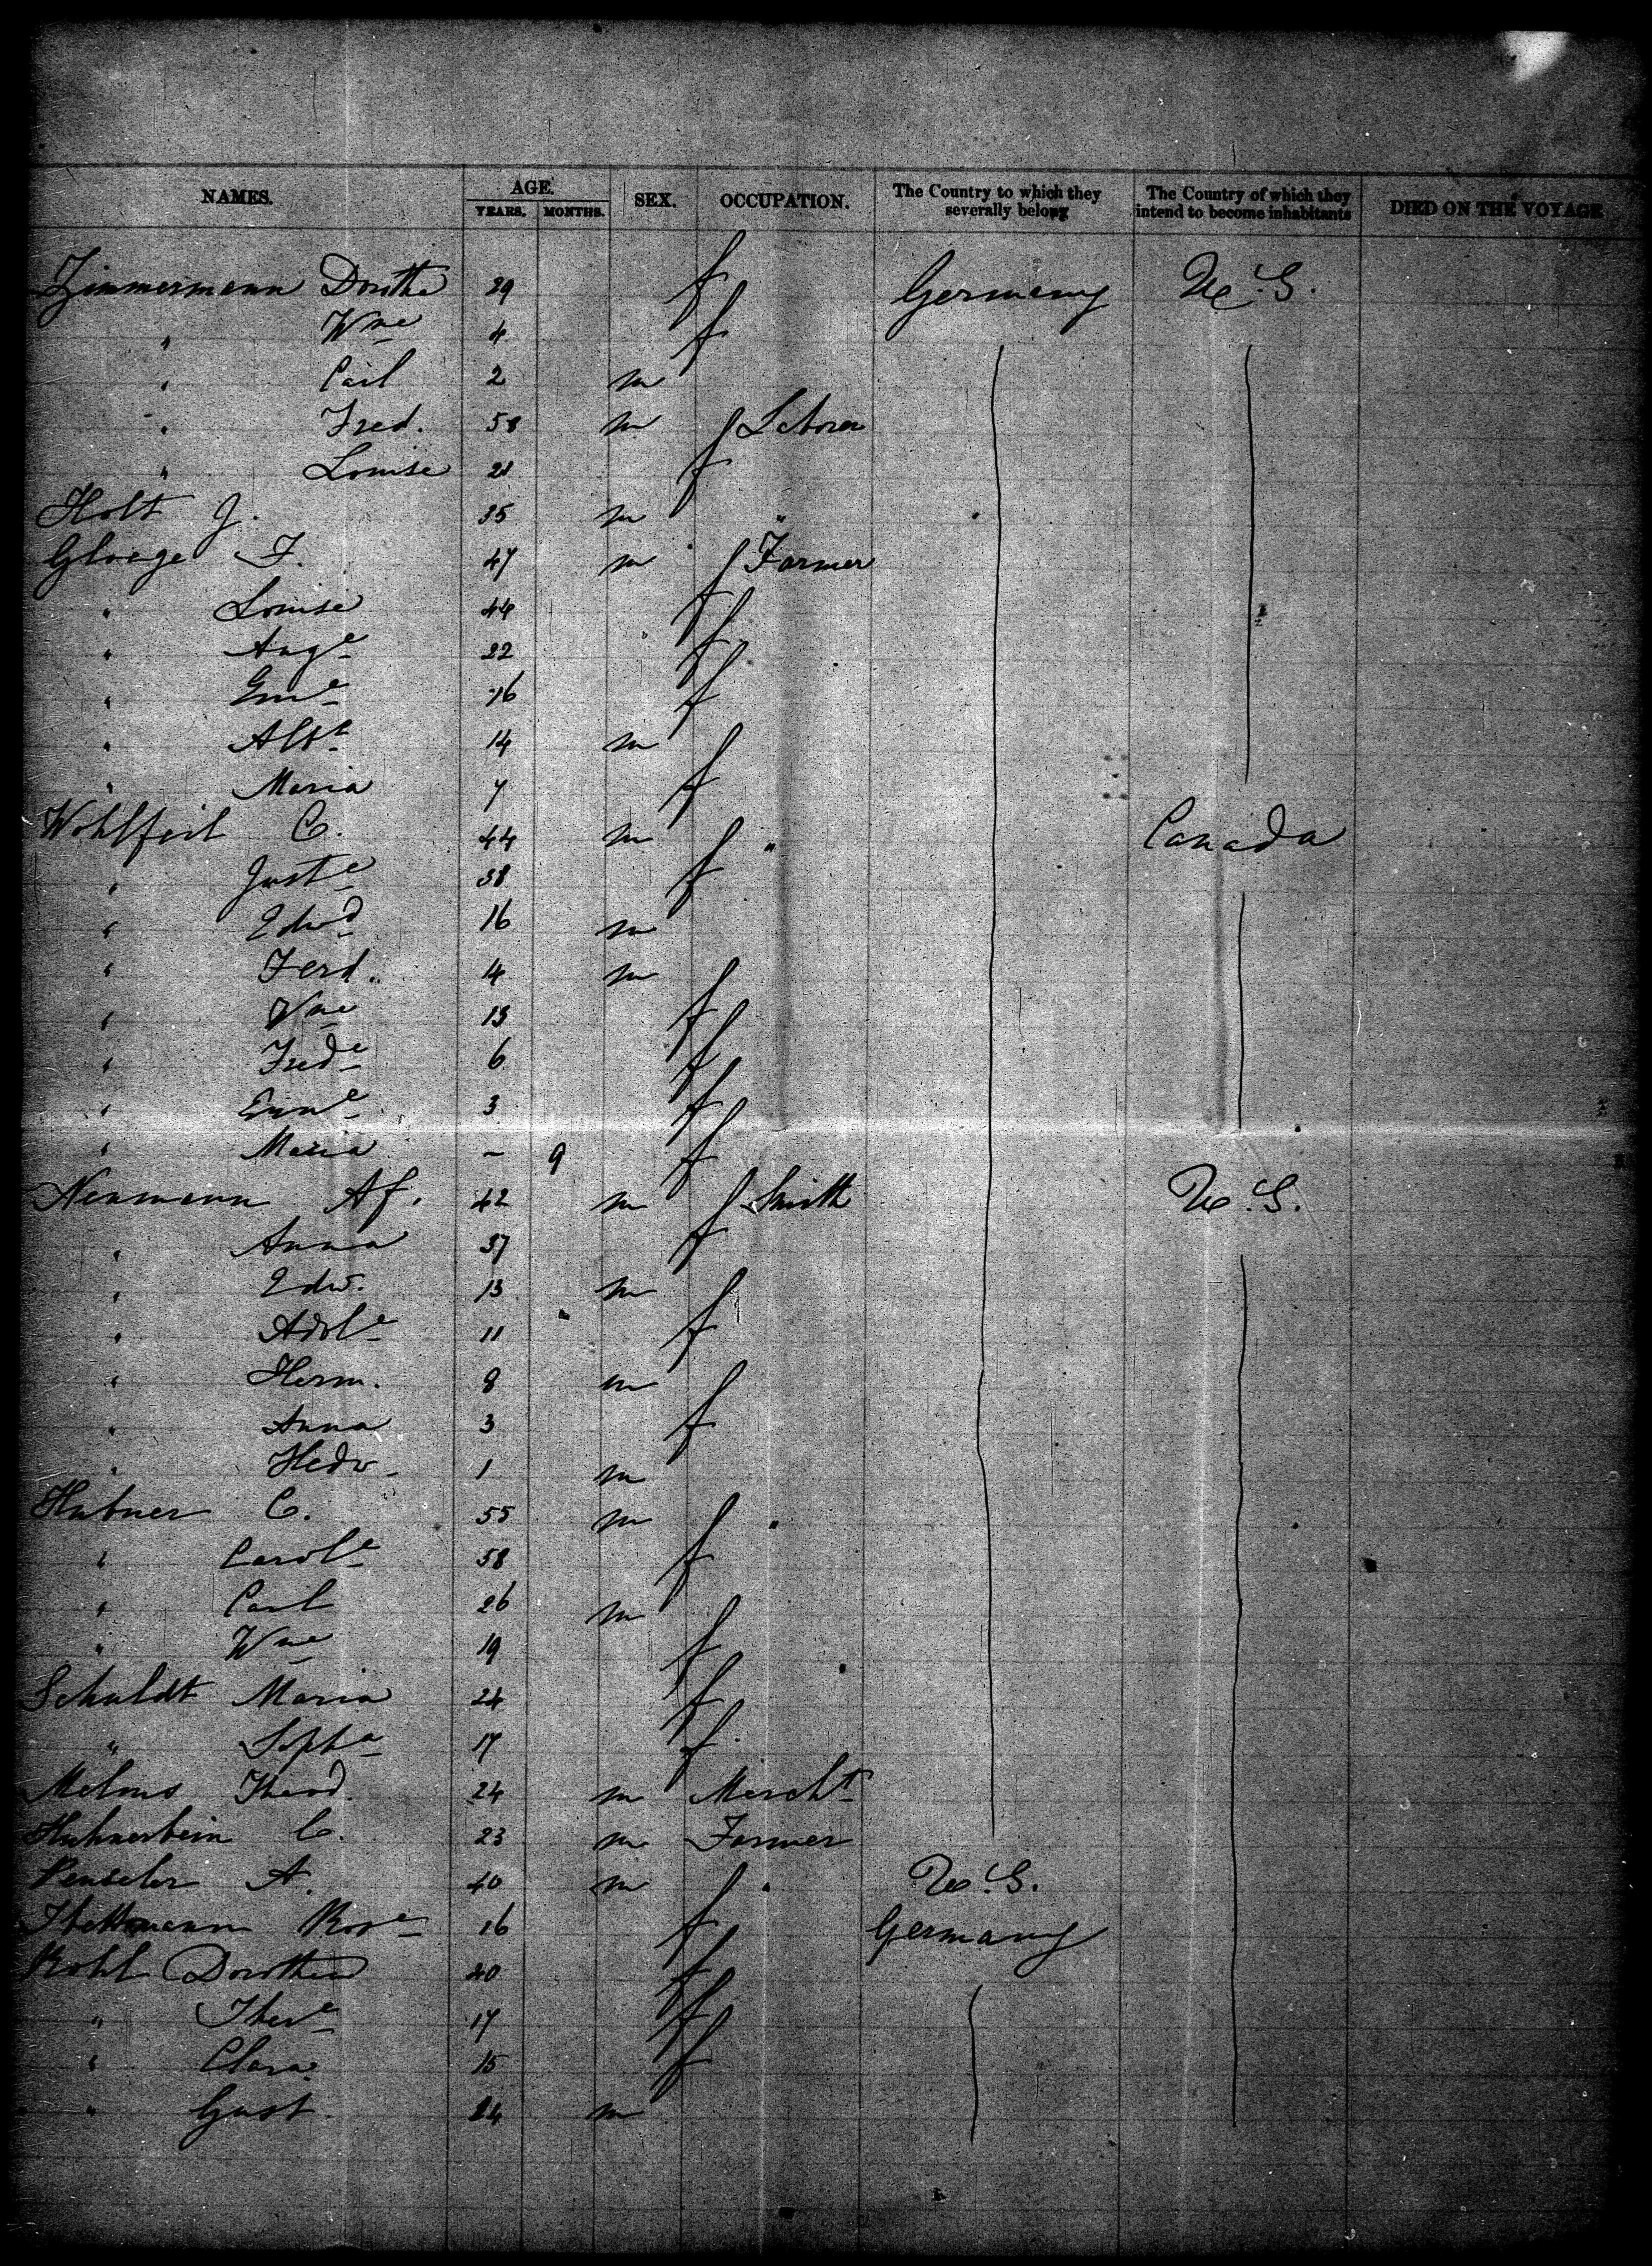 NAMES. AGE. YEARS. MONTHS. SEX. OCCUPATION. The Country to which they severally belong The Country of which they intend to become inhabitants DIED ON THE VOYAGE
Zimmermann Dorotha 29 f Germany U.S.
" Wne 4 f
" Carl 2 m
" Fred. 58 m Laborer
" Louise 21 f
Holt J. 35 m "
Gloege F. 47 m Farmer
" Louise 44 f
" Auge 22 f
" Erne 16 f
" Albt 14 m
" Maria 7 f
Wohlfeil C. 44 m " Canada
" Juste 38 f
" Edwd 16 m
" Ferd. 14 m
" Wne 13 f
" Frede 6 f
" Erne 3 f
" Maria - 9 f
Neumann Af. 42 m Smith U.S.
" Anna 37 f
" Edw. 13 m
" Adole 11 f
" Herm. 8 m
" Anna 3 f
" Hedw. 1 m
Hubner C. 55 m "
" Carole 58 f
" Carl 26 m
" Wne 19 f
Schuldt Maria 24 f
" Sopha 17 f
Melms Theod. 24 m Mercht
Huhnerbein C. 23 m Farmer
A. 40 m " U.S.
Rose 16 f Germany
Kohl Dorothea 40 f
" There 17 f
" Clara 15 f
" Gust. 24 m